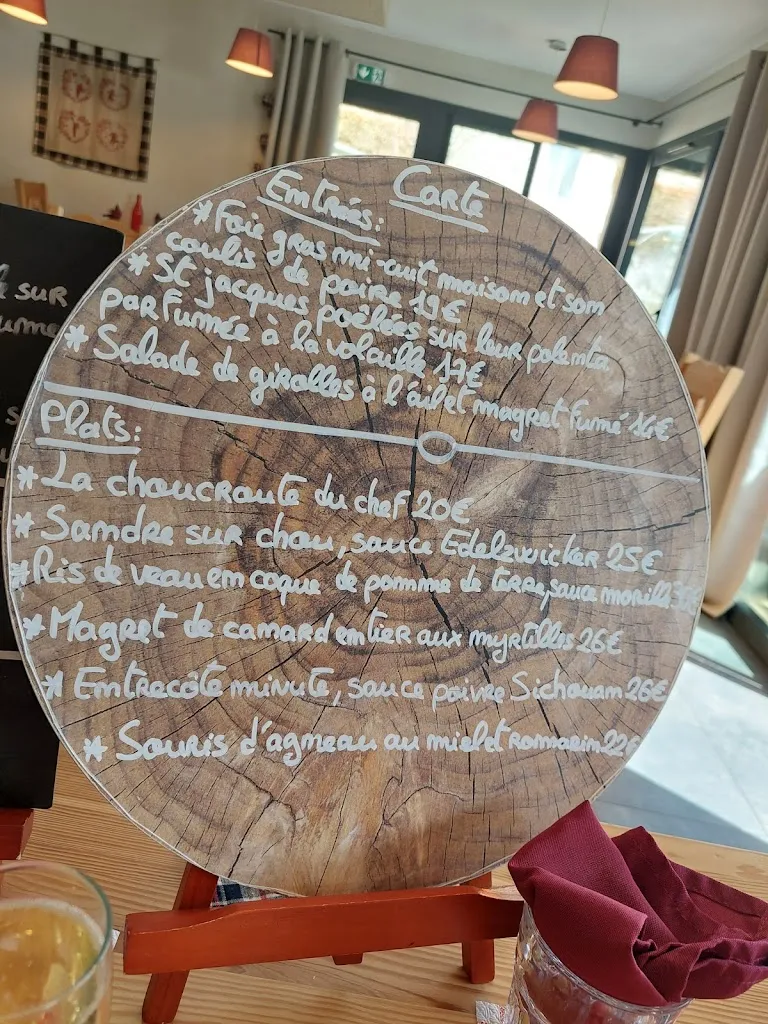 Carte
Entrées:
* Foie gras mi-cuit maison et son
coulis de poire 19€
* St jacques poêlées sur leur polenta
parfumée à la volaille 17€
* Salade de girolles à l'ail et magret fumé 16€
Plats:
* La choucroute du chef 20€
* Sandre sur chou, sauce Edelzwicker 25€
* Ris de veau en coque de pomme de terre, sauce morille
* Magret de canard entier aux myrtilles 26€
* Entrecôte minute, sauce poivre Sichouan 26€
* Souris d'agneau au miel et romarin 22€
sur